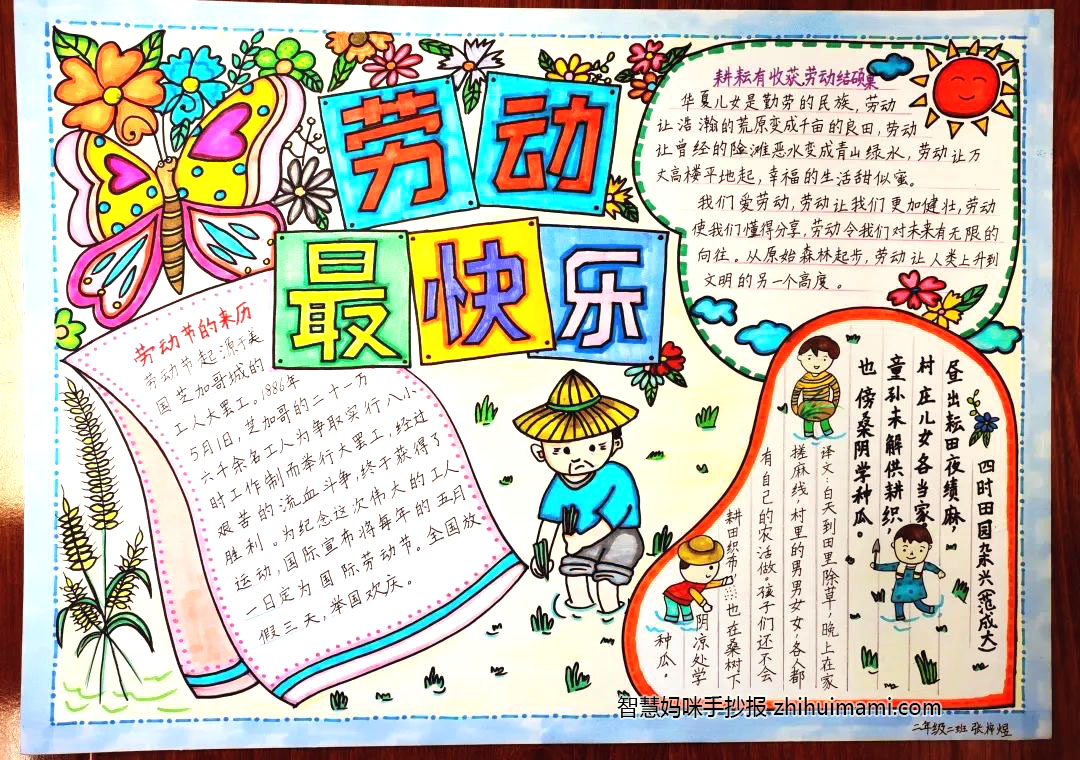 劳动
最快乐
劳动节的来历
劳动节起源于美
国芝加哥城的
工人大罢工。1886年
5月1日,芝加哥的二十一万
六千余名工人为争取实行八小
时工作制而举行大罢工,经过
艰苦的流血斗争,终于获得了
胜利。为纪念这次伟大的工人
运动,国际宣布将每年的五月
一日定为国际劳动节。全国放
假三天,举国欢庆。
耕耘有收获,劳动结硕果
华夏儿女是勤劳的民族,劳动
让浩瀚的荒原变成千亩的良田,劳动
让曾经的险滩恶水变成青山绿水,劳动让万
丈高楼平地起,幸福的生活甜似蜜。
我们爱劳动,劳动让我们更加健壮,劳动
使我们懂得分享,劳动令我们对未来有无限的
向往。从原始森林起步,劳动让人类上升到
文明的另一个高度。
四时田园杂兴(范成大)
昼出耘田夜绩麻,
村庄儿女各当家,
童孙未解供耕织,
也傍桑阴学种瓜。
译文:白天到田里除草,晚上在家
搓麻线,村里的男男女女,各人都
有自己的农活做。孩子们还不会
耕田织布,也在桑树下
阴凉处学
种瓜。
智慧妈咪手抄报 zhihuimami.com
二年级二班 张梓煜